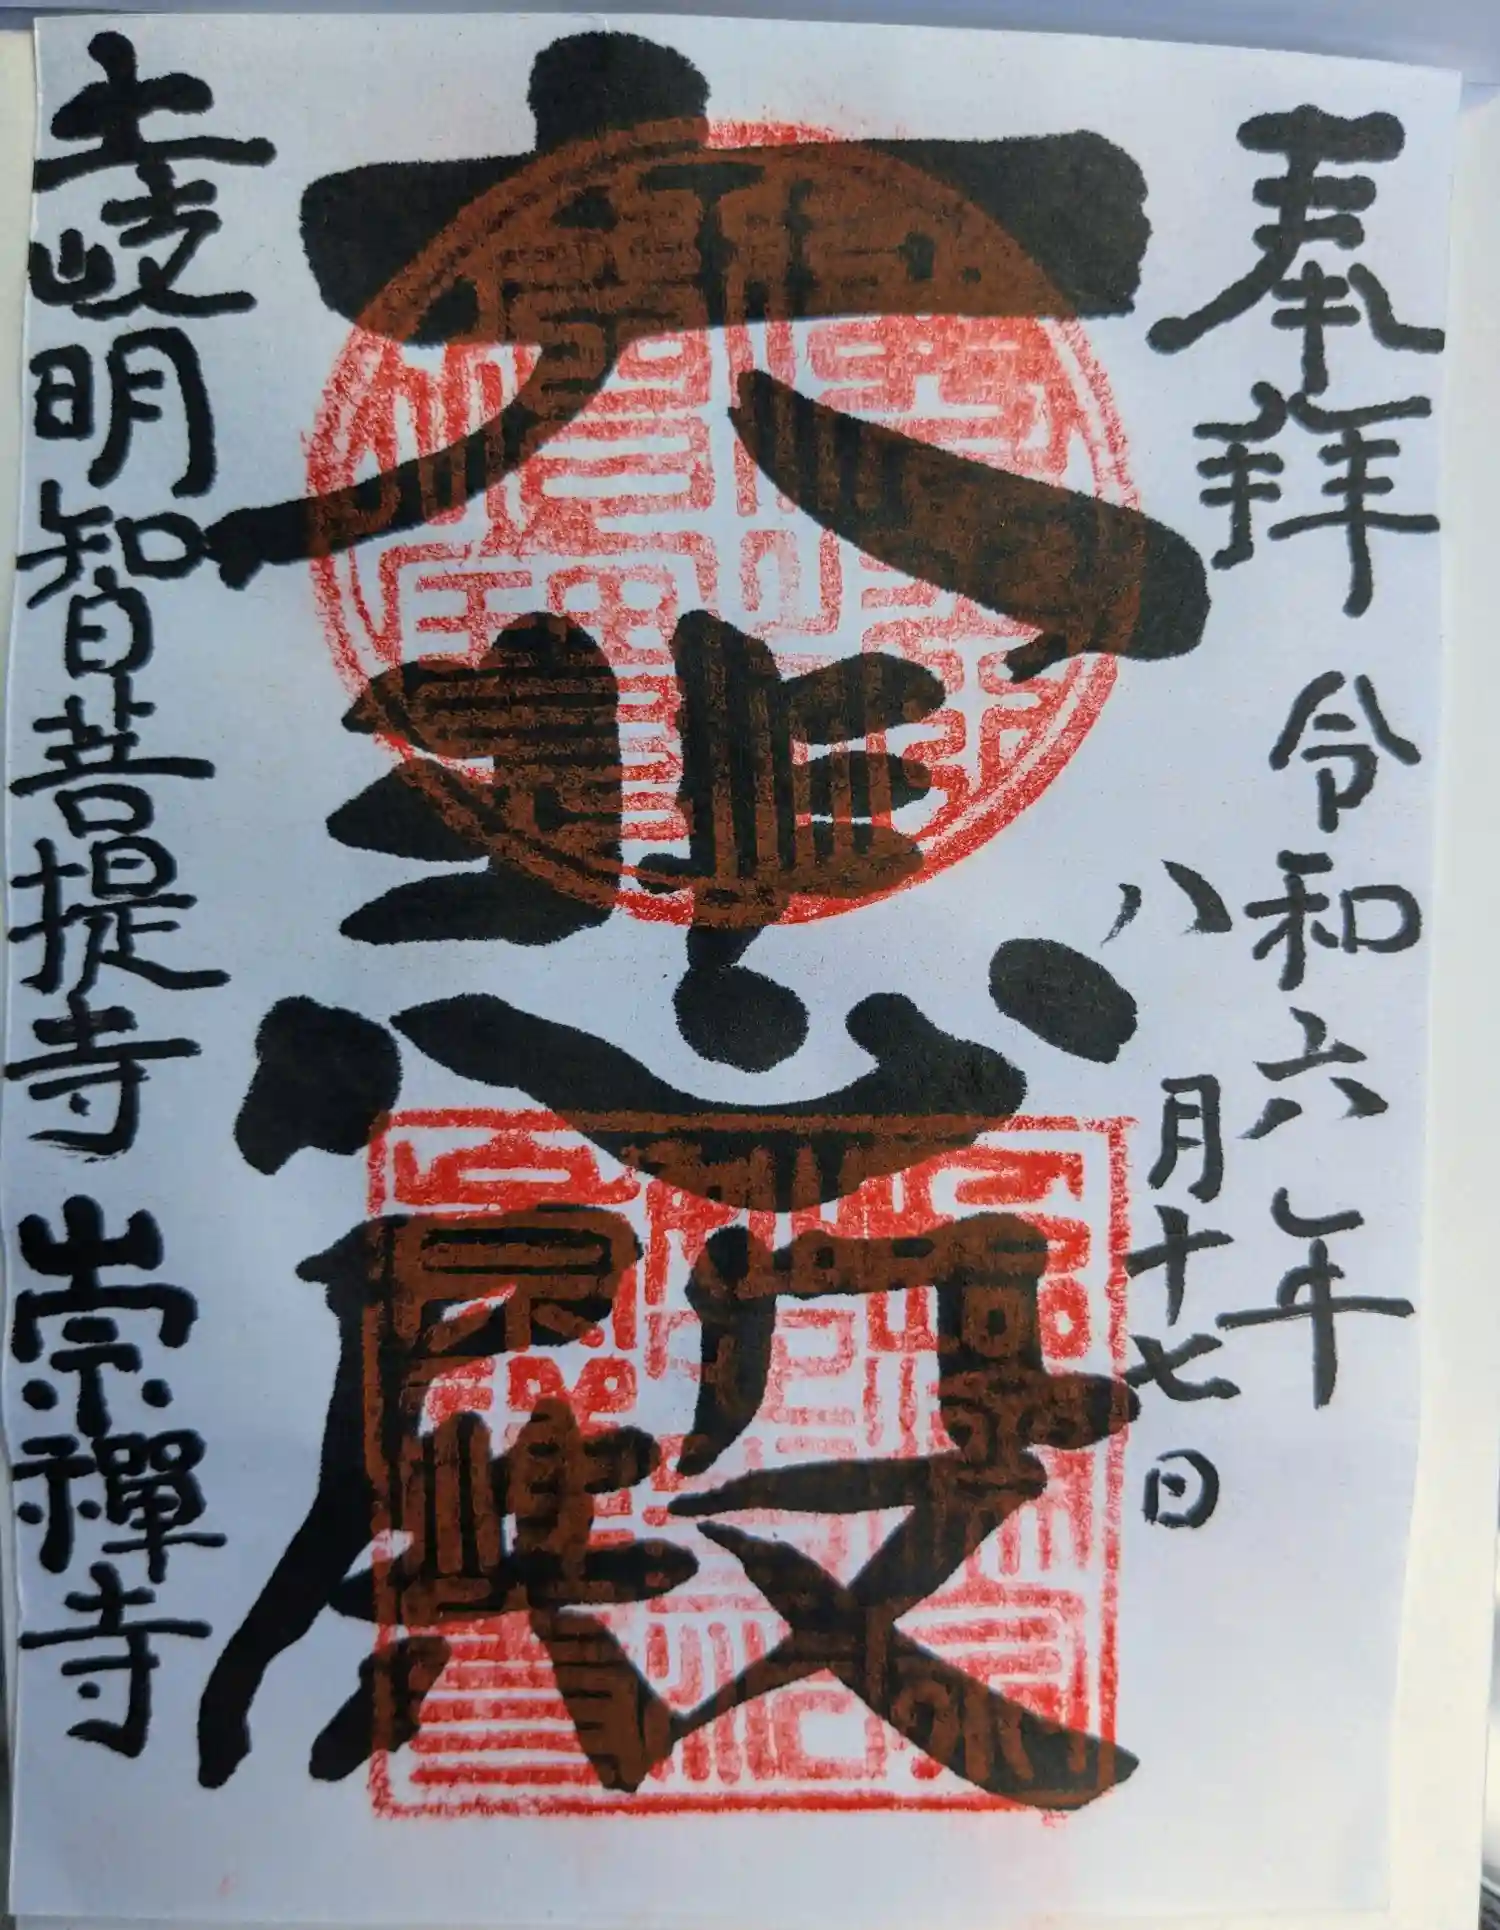 奉拝
令和六年
八月十七日
大悲殿
土岐明智菩提寺 崇禪寺